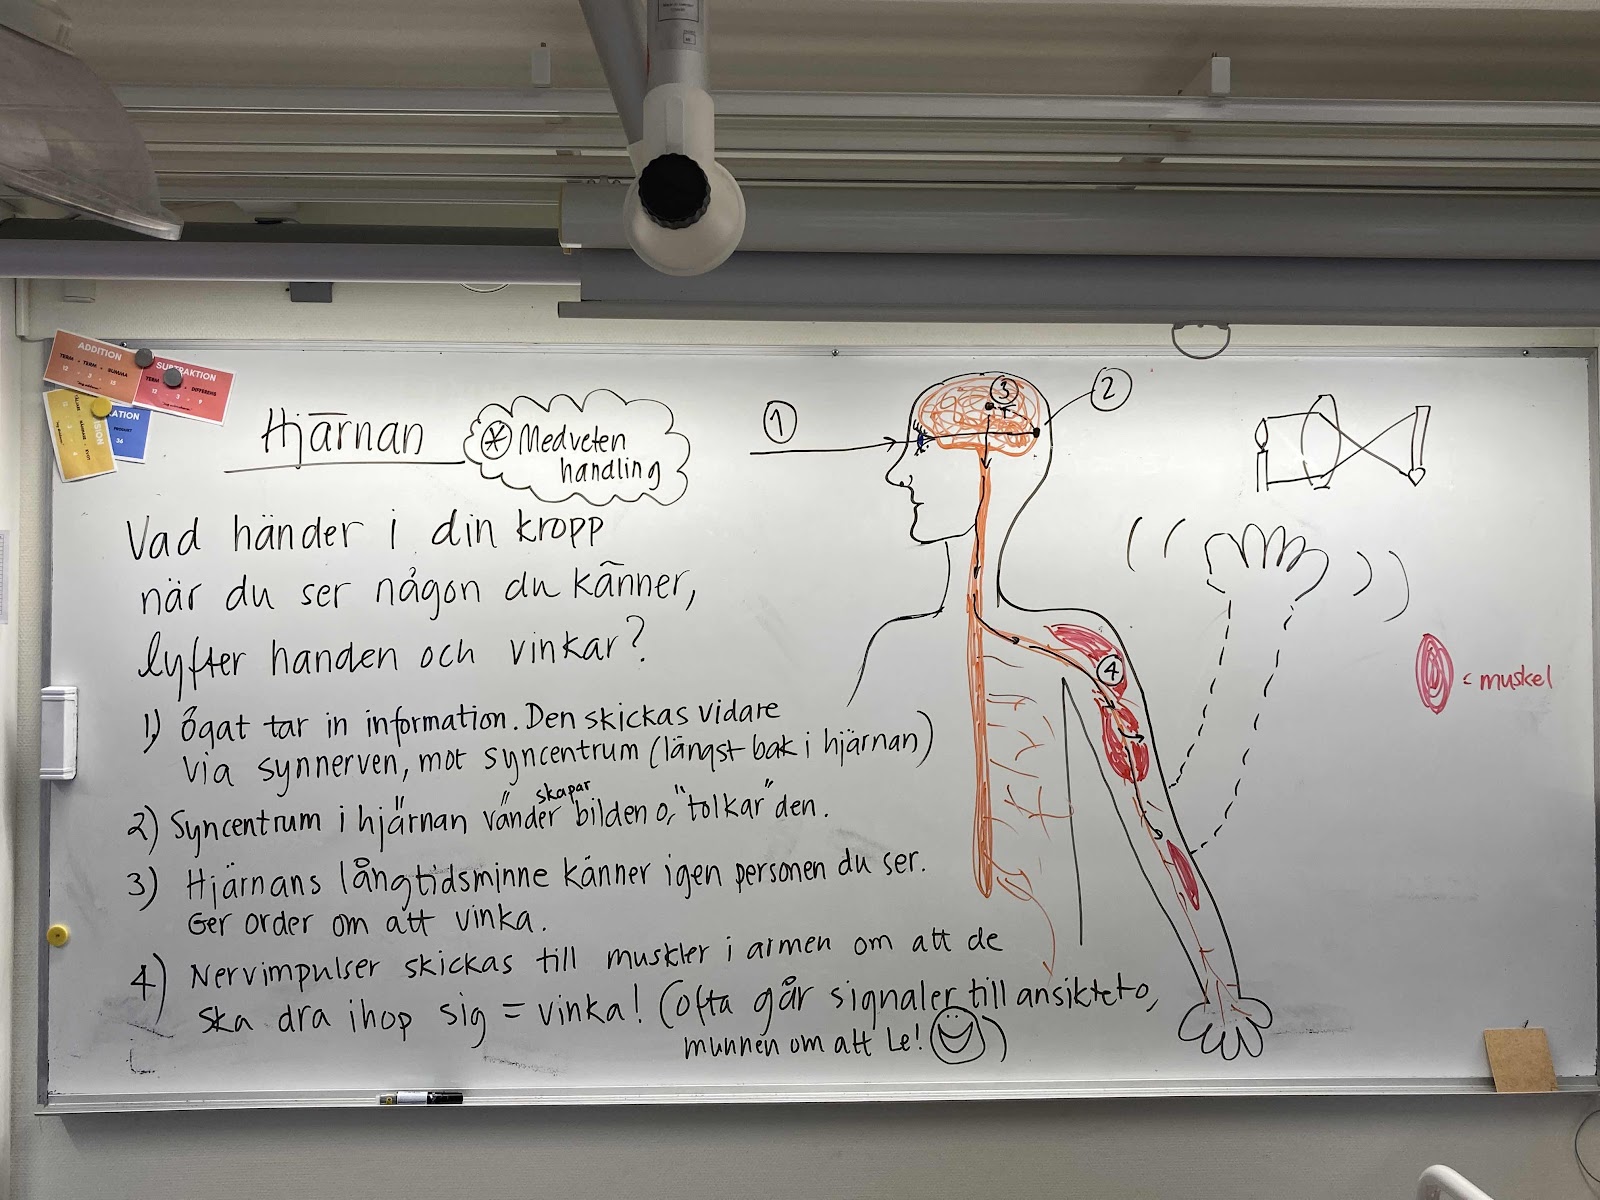 ADDITION
TERM + TERM = SUMMA
SUBTRAKTION
DIFFERENS
PRODUKT
36
Hjärnan
* Medveten
handling
Vad händer i din kropp
när du ser någon du känner,
lyfter handen och vinkar?
1) Ögat tar in information. Den skickas vidare
via synnerven, mot syncentrum (längst bak i hjärnan)
skapar
2) Syncentrum i hjärnan "vänder" bilden o, "tolkar" den.
3) Hjärnans långtidsminne känner igen personen du ser.
Ger order om att vinka.
4) Nervimpulser skickas till muskler i armen om att de
ska dra ihop sig = vinka! (ofta går signaler till ansiktet o,
munnen om att le! )
1
2
3
4
= muskel